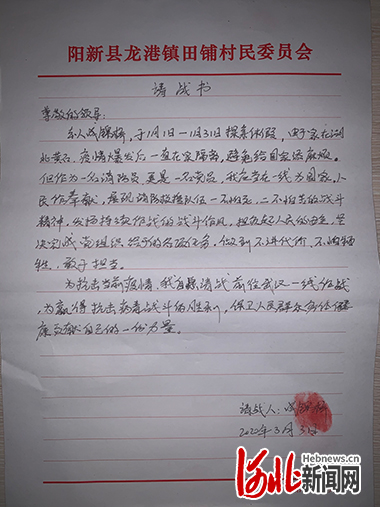 阳新县龙港镇田铺村民委员会
请战书
尊敬的领导:
本人成锦辉,于1月1日—1月31日探亲休假,由于家在湖
北黄石,疫情爆发后一直在家隔离,避免给国家添麻烦。
但作为一名消防员,更是一名党员,我应当在一线为国家、人
民作奉献,展现消防救援队伍一不怕苦,二不怕死的战斗
精神,发扬连续作战的战斗作风,担负起人民的重,坚
决完成党组织给予的各项任务,做到不讲代价、不怕牺
牲,敢于担当。
为抗击当前疫情,我自愿请战前往武汉一线作战,
为赢得抗击病毒战斗的胜利,保卫人民群众身体健
康贡献自己的一份力量。
请战人:成
2020年3月3日
Hebnews.cn
河北新闻网